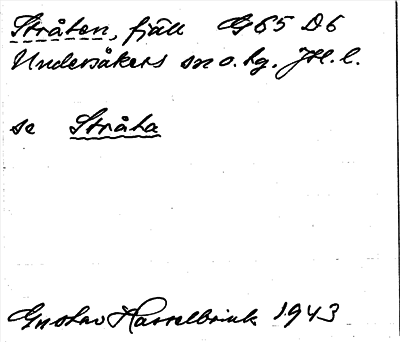 Stråten, fjäll G65 D6
Undersåkers sn o. hg. Jtl. l.
se Stråta
Gustav Hasselbrink 1943